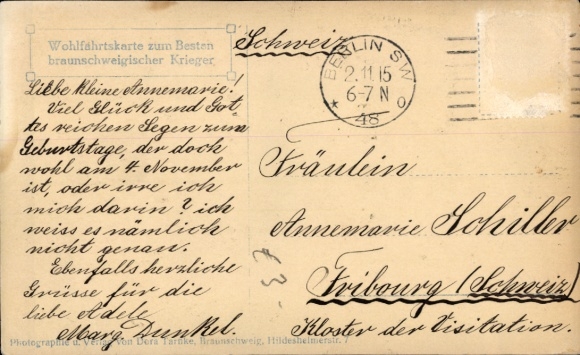 Wohlfahrtskarte zum Besten
braunschweigischer Krieger
Schweiz
BERLIN SW
2.11.15
6-7 N
* 48 o
Liebe kleine Annemarie!
Viel Glück und Got-
tes reichen Segen zum
Geburtstage, der doch
wohl am 4. November
ist, oder irre ich
mich darin? ich
weiss es nämlich
nicht genau.
Ebenfalls herzliche
Grüsse für die
liebe Adele
Marg Dunkel.
Fräulein
Annemarie Schiller
Fribourg (Schweiz)
Kloster der Visitation.
£3-
Photographie u. Verlag von Dora Tarnke, Braunschweig, Hildesheimerstr. 7